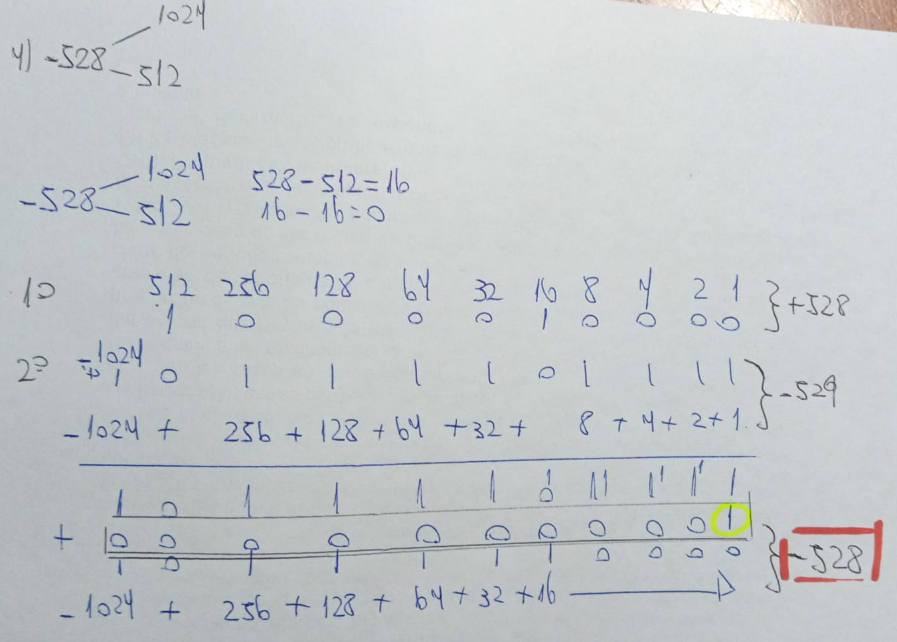 1024
4) -528
-512
1024
-528
512
528-512=16
16-16=0
1º 512 256 128 64 32 16 8 4 2 1
1 0 0 0 0 1 0 0 0 0 } +528
-1024
2º 1 0 1 1 1 1 0 1 1 1 1 } -529
-1024 + 256 + 128 + 64 + 32 + 8 + 4 + 2 + 1
1 0 1 1 1 1 0 1 1 1 1
+ 0 0 0 0 0 0 0 0 0 0 1
1 0 1 1 1 1 1 0 0 0 0 } -528
-1024 + 256 + 128 + 64 + 32 + 16